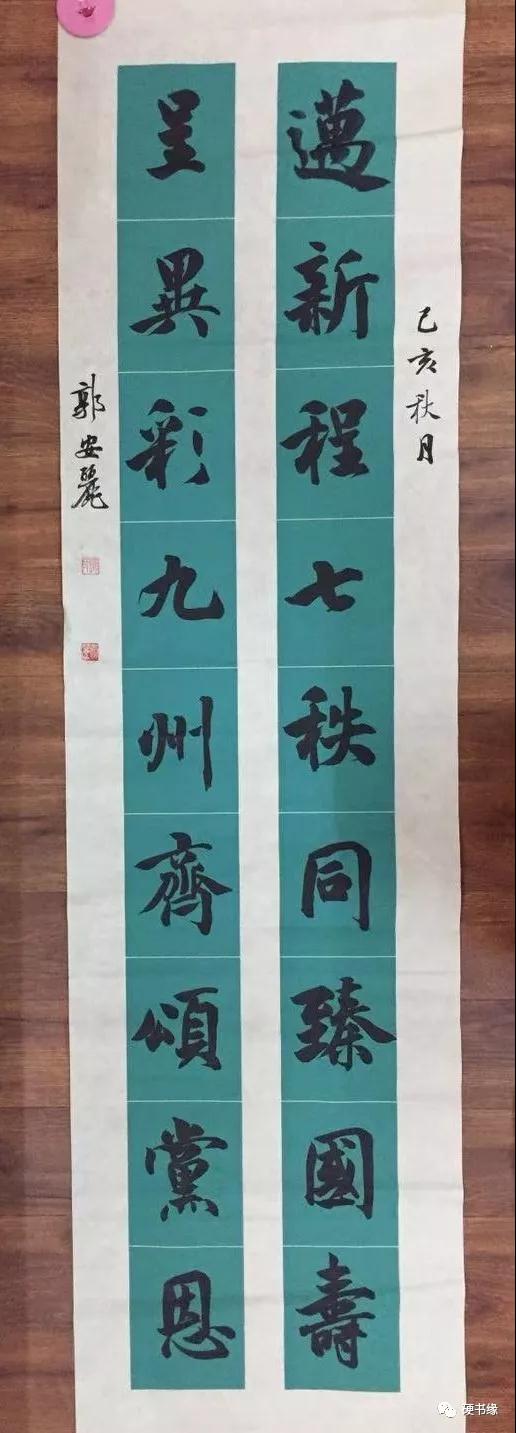 己亥秋月
邁新程七秩同臻國壽
呈異彩九州齊頌黨恩
郭安麗
硬书缘